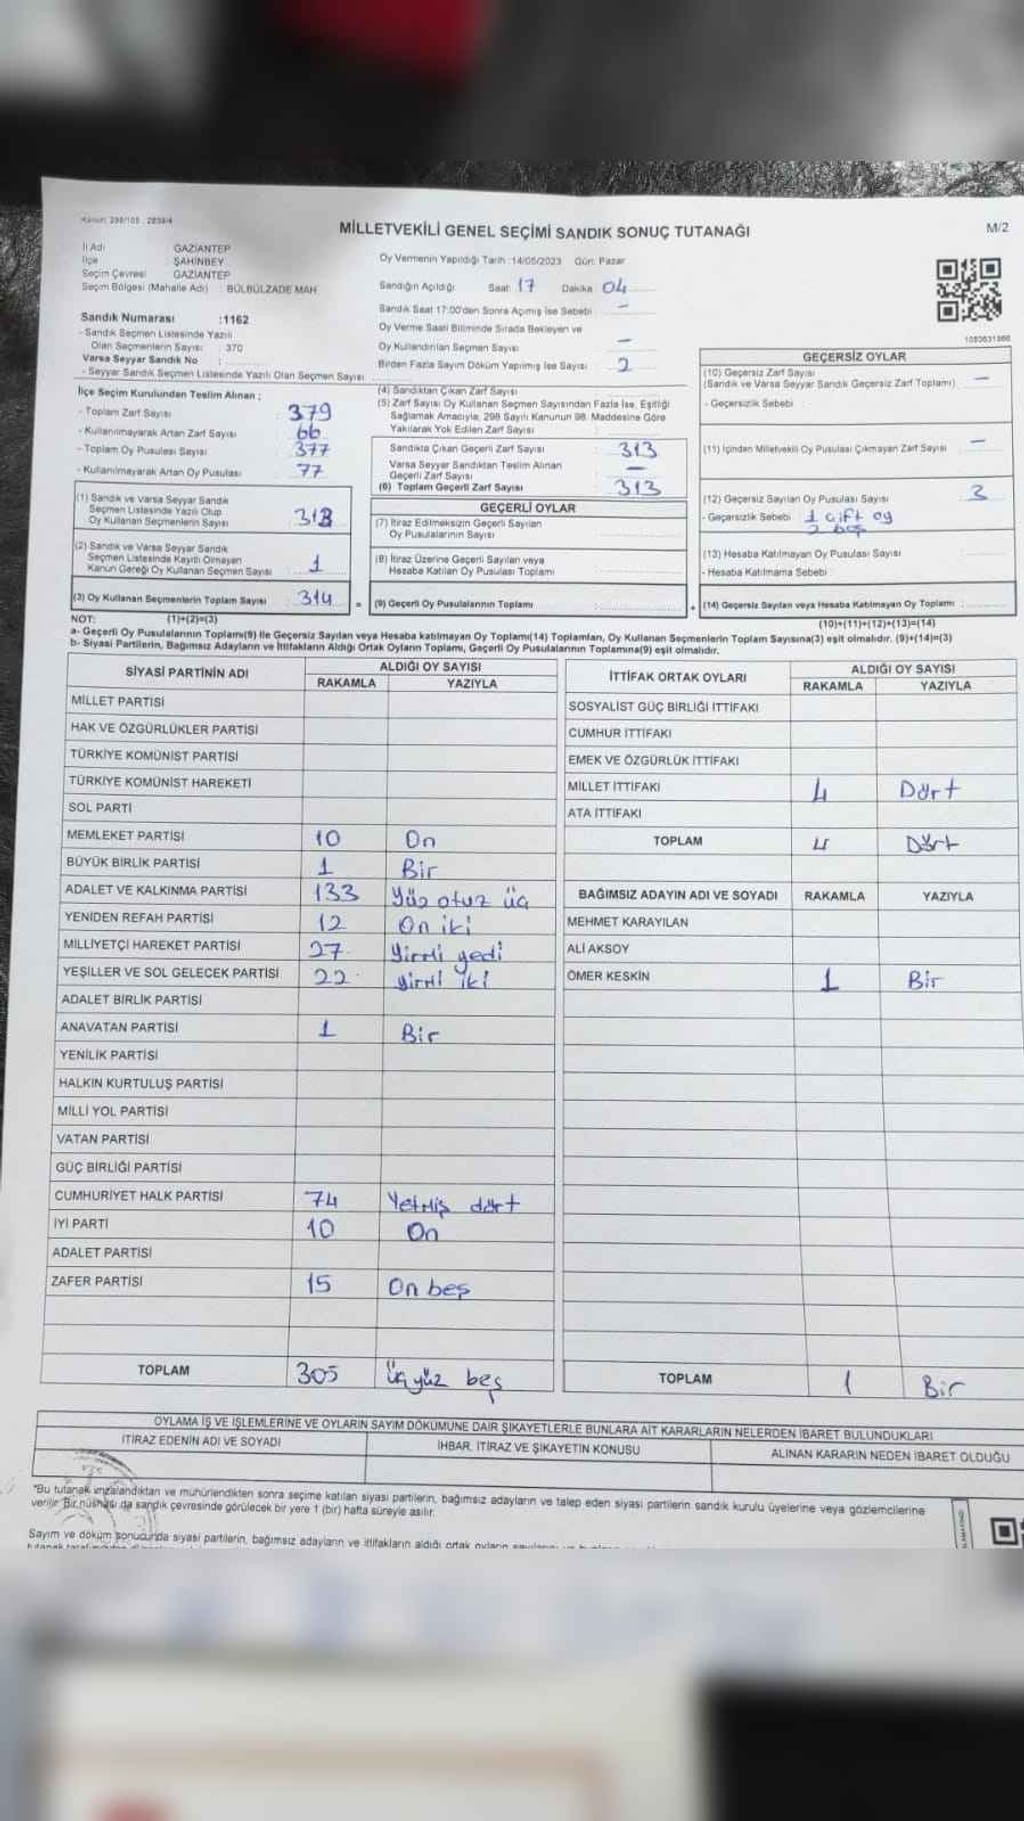 Kanun: 298/105 : 2839/4
MİLLETVEKİLİ GENEL SEÇİMİ SANDIK SONUÇ TUTANAĞI
M/2
İl Adı GAZİANTEP
İlçe ŞAHİNBEY
Seçim Çevresi GAZİANTEP
Seçim Bölgesi (Mahalle Adı) : BÜLBÜLZADE MAH.
Sandık Numarası :1162
- Sandık Seçmen Listesinde Yazılı
Olan Seçmenlerin Sayısı : 370
Varsa Seyyar Sandık No :
- Seyyar Sandık Seçmen Listesinde Yazılı Olan Seçmen Sayısı
Oy Vermenin Yapıldığı Tarih :14/05/2023 Gün: Pazar
Sandığın Açıldığı Saat 17 Dakika 04
Sandık Saat 17:00'den Sonra Açmış İse Sebebi –
Oy Verme Saati Bitiminde Sırada Bekleyen ve
Oy Kullandırılan Seçmen Sayısı –
Birden Fazla Sayım Döküm Yapılmış İse Sayısı 2
İlçe Seçim Kurulundan Teslim Alınan ;
- Toplam Zarf Sayısı 379
- Kullanılmayarak Artan Zarf Sayısı 66
- Toplam Oy Pusulası Sayısı 377
- Kullanılmayarak Artan Oy Pusulası 77
(1) Sandık ve Varsa Seyyar Sandık
Seçmen Listesinde Yazılı Olup
Oy Kullanan Seçmenlerin Sayısı 313
(2) Sandık ve Varsa Seyyar Sandık
Seçmen Listesinde Kayıtlı Olmayan
Kanun Gereği Oy Kullanan Seçmen Sayısı 1
(3) Oy Kullanan Seçmenlerin Toplam Sayısı 314 =
(4) Sandıktan Çıkan Zarf Sayısı
(5) Zarf Sayısı Oy Kullanan Seçmen Sayısından Fazla İse, Eşitliği
Sağlamak Amacıyla, 298 Sayılı Kanunun 98. Maddesine Göre
Yakılarak Yok Edilen Zarf Sayısı
Sandıkta Çıkan Geçerli Zarf Sayısı 313
Varsa Seyyar Sandıktan Teslim Alınan
Geçerli Zarf Sayısı –
(6) Toplam Geçerli Zarf Sayısı 313
GEÇERLİ OYLAR
(7) İtiraz Edilmeksizin Geçerli Sayılan
Oy Pusulalarının Sayısı
(8) İtiraz Üzerine Geçerli Sayılan veya
Hesaba Katılan Oy Pusulası Toplamı
(9) Geçerli Oy Pusulalarının Toplamı +
1083631966
GEÇERSİZ OYLAR
(10) Geçersiz Zarf Sayısı
(Sandık ve Varsa Seyyar Sandık Geçersiz Zarf Toplamı) –
- Geçersizlik Sebebi :
(11) İçinden Milletvekili Oy Pusulası Çıkmayan Zarf Sayısı –
(12) Geçersiz Sayılan Oy Pusulası Sayısı 3
- Geçersizlik Sebebi 1 çift oy
2 boş
(13) Hesaba Katılmayan Oy Pusulası Sayısı
- Hesaba Katılmama Sebebi
(14) Geçersiz Sayılan veya Hesaba Katılmayan Oy Toplamı
NOT: (1)+(2)=(3) (10)+(11)+(12)+(13)=(14)
a- Geçerli Oy Pusulalarının Toplamı(9) ile Geçersiz Sayılan veya Hesaba katılmayan Oy Toplamı(14) Toplamları, Oy Kullanan Seçmenlerin Toplam Sayısına(3) eşit olmalıdır. (9)+(14)=(3)
b- Siyasi Partilerin, Bağımsız Adayların ve İttifakların Aldığı Ortak Oyların Toplamı, Geçerli Oy Pusulalarının Toplamına(9) eşit olmalıdır.
SİYASİ PARTİNİN ADI ALDIĞI OY SAYISI
RAKAMLA YAZIYLA
MİLLET PARTİSİ
HAK VE ÖZGÜRLÜKLER PARTİSİ
TÜRKİYE KOMÜNİST PARTİSİ
TÜRKİYE KOMÜNİST HAREKETİ
SOL PARTİ
MEMLEKET PARTİSİ 10 On
BÜYÜK BİRLİK PARTİSİ 1 Bir
ADALET VE KALKINMA PARTİSİ 133 Yüz otuz üç
YENİDEN REFAH PARTİSİ 12 On iki
MİLLİYETÇİ HAREKET PARTİSİ 27 Yirmi yedi
YEŞİLLER VE SOL GELECEK PARTİSİ 22 Yirmi iki
ADALET BİRLİK PARTİSİ
ANAVATAN PARTİSİ 1 Bir
YENİLİK PARTİSİ
HALKIN KURTULUŞ PARTİSİ
MİLLİ YOL PARTİSİ
VATAN PARTİSİ
GÜÇ BİRLİĞİ PARTİSİ
CUMHURİYET HALK PARTİSİ 74 Yetmiş dört
İYİ PARTİ 10 On
ADALET PARTİSİ
ZAFER PARTİSİ 15 On beş
TOPLAM 305 Üçyüz beş
İTTİFAK ORTAK OYLARI ALDIĞI OY SAYISI
RAKAMLA YAZIYLA
SOSYALİST GÜÇ BİRLİĞİ İTTİFAKI
CUMHUR İTTİFAKI
EMEK VE ÖZGÜRLÜK İTTİFAKI
MİLLET İTTİFAKI 4 Dört
ATA İTTİFAKI
TOPLAM 4 Dört
BAĞIMSIZ ADAYIN ADI VE SOYADI RAKAMLA YAZIYLA
MEHMET KARAYILAN
ALİ AKSOY
ÖMER KESKİN 1 Bir
TOPLAM 1 Bir
OYLAMA İŞ VE İŞLEMLERİNE VE OYLARIN SAYIM DÖKÜMÜNE DAİR ŞİKAYETLERLE BUNLARA AİT KARARLARIN NELERDEN İBARET BULUNDUKLARI
İTİRAZ EDENİN ADI VE SOYADI İHBAR, İTİRAZ VE ŞİKAYETİN KONUSU ALINAN KARARIN NEDEN İBARET OLDUĞU
"Bu tutanak imzalandıktan ve mühürlendikten sonra seçime katılan siyasi partilerin, bağımsız adayların ve talep eden siyasi partilerin sandık kurulu üyelerine veya gözlemcilerine
verilir. Bir nüshası da sandık çevresinde görülecek bir yere 1 (bir) hafta süreyle asılır.
Sayım ve döküm sonucunda siyasi partilerin, bağımsız adayların ve ittifakların aldığı ortak oyların